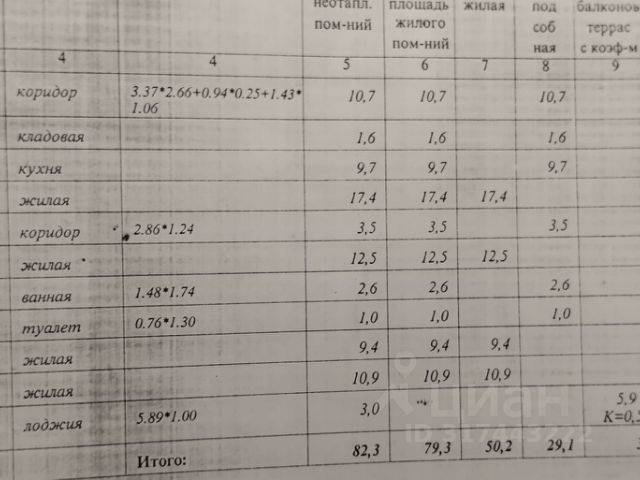 неотапл. площадь жилая под балконов
пом-ний жилого соб террас
пом-ний ная с коэф-м
4 4 5 6 7 8 9
коридор 3.37*2.66+0.94*0.25+1.43* 10,7 10,7 10,7
1.06
кладовая 1,6 1,6 1,6
кухня 9,7 9,7 9,7
жилая 17,4 17,4 17,4
коридор 2.86*1.24 3,5 3,5 3,5
жилая 12,5 12,5 12,5
ванная 1.48*1.74 2,6 2,6 2,6
туалет 0.76*1.30 1,0 1,0 1,0
жилая 9,4 9,4 9,4
жилая 10,9 10,9 10,9
лоджия 5.89*1.00 3,0 5,9
K=0,5
Итого: 82,3 79,3 50,2 29,1
циан